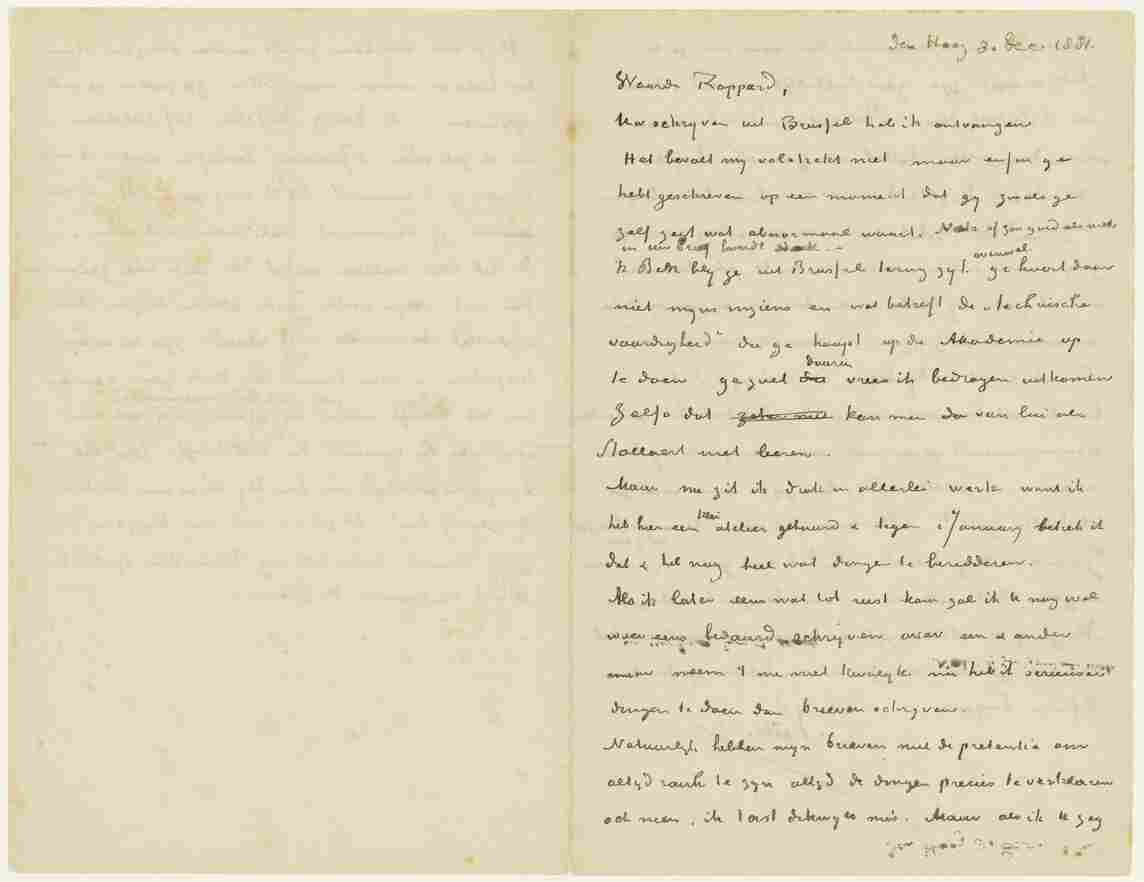 den Haag 3. Dec. 1881.
Waarde Rappard,
Uw schrijven uit Brussel heb ik ontvangen
Het bevalt mij volstrekt niet maar enfin ge
hebt geschreven op een moment dat gij zooals ge
zelf zegt wat abnormaal waart. of zoo goed als niets
in uw brief houdt
'k Ben blij ge uit Brussel terug zijt. ge hoort daar
evenwel
niet mijns inziens en wat betreft de „technische
vaardigheid” die ge hoopt op die Akademie op
te doen ge zult die vrees ik bedrogen uitkomen
daarin
Zelfs dat zeker niet kan men van lui als
Stallaert niet leeren.
Maar nu zit ik druk in allerlei werk want ik
heb hier een atelier gehuurd & tegen 1 Januarij betrek ik
klein
dat & heb nog heel wat dingen te beredderen.
Als ik later eens wat tot rust kom zal ik U nog wel
weer eens bedaard schrijven over een & ander
maar neem 't me niet kwalijk nu heb ik serieuser
dingen te doen dan brieven schrijven.
Natuurlijk hebben mijn brieven niet de pretentie om
altijd raak te zijn altijd de dingen precies te verklaren
och neen, ik tast dikwijls mis. Maar als ik U zeg